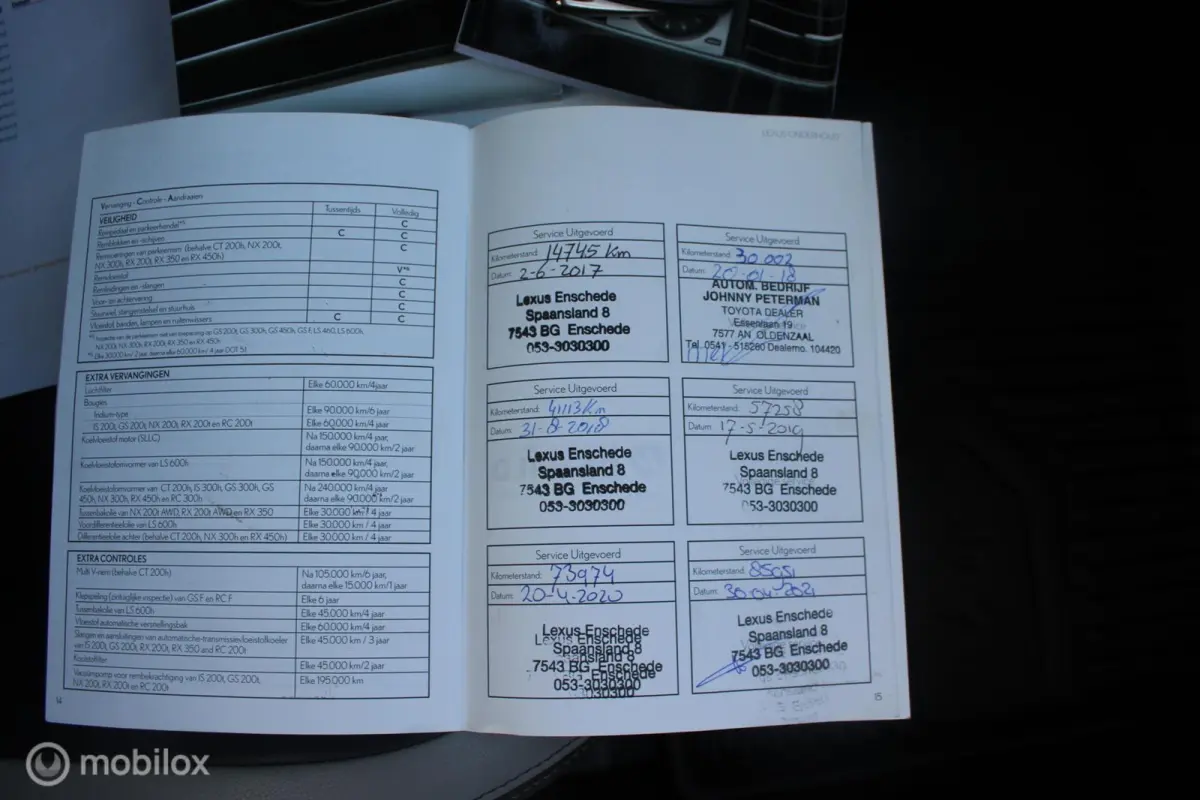 Vervanging - Controle - Aandraaien
VEILIGHEID Tussentijds Volledig
Rempedaal en parkeerhendel*⁵ C
Remblokken en -schijven C C
Remvoeringen van parkeerrem (behalve CT 200h, NX 200t, NX 300h, RX 200t, RX 350 en RX 450h) C
Remvloeistof V*⁶
Remleidingen en -slangen C
Voor- en achtervering C
Stuurwiel, stangenstelsel en stuurhuis C
Vloeistof, banden, lampen en ruitenwissers C C
NX 200t, NX 300h, RX 200t, RX 350 en RX 450h
EXTRA VERVANGINGEN
Luchtfilter Elke 60.000 km/4jaar
Bougies
Iridium-type Elke 90.000 km/6 jaar
IS 200t, GS 200t, NX 200t, RX 200t en RC 200t Elke 60.000 km/4 jaar
Koelvloeistof motor (SLLC) Na 150.000 km/4 jaar,
daarna elke 90.000 km/2 jaar
Koelvloeistofomvormer van LS 600h Na 150.000 km/4 jaar,
daarna elke 90.000 km/2 jaar
Koelvloeistofomvormer van CT 200h, IS 300h, GS 300h, GS Na 240.000 km/4 jaar
450h, NX 300h, RX 450h en RC 300h daarna elke 90.000 km/2 jaar
Tussenbakolie van NX 200t AWD, RX 200t AWD en RX 350 Elke 30.000 km / 4 jaar
Voordifferentieelolie van LS 600h Elke 30.000 km / 4 jaar
Differentieelolie achter (behalve CT 200h, NX 300h en RX 450h) Elke 30.000 km / 4 jaar
EXTRA CONTROLES
Multi V-riem (behalve CT 200h) Na 105.000 km/6 jaar,
daarna elke 15.000 km/1 jaar
Klepspeling (ontluglijke inspectie) van GS F en RC F Elke 6 jaar
Tussenbakolie van LS 600h Elke 45.000 km/4 jaar
Vloeistof automatische versnellingsbak Elke 60.000 km/4 jaar
Slangen en aansluitingen van automatische-transmissievloeistofkoeler Elke 45.000 km / 3 jaar
van IS 200t, GS 200t, RX 200t, RX 350 and RC 200t
Koolstoffilter Elke 45.000 km/2 jaar
Vacuümpomp voor rembekrachtiging van IS 200t, GS 200t, Elke 195.000 km
NX 200t, RX 200t en RC 200t
14
LEXUS ONDERHOUD
Service Uitgevoerd
Kilometerstand: 14745 Km
Datum: 2-6-2017
Lexus Enschede
Spaansland 8
7543 BG Enschede
053-3030300
Service Uitgevoerd
Kilometerstand: 30.002
Datum: 20-01-18
AUTOM. BEDRIJF
JOHNNY PETERMAN
TOYOTA DEALER
Essenlaan 19
7577 AN OLDENZAAL
Tel. 0541 - 515280 Dealerno. 104420
Service Uitgevoerd
Kilometerstand: 41113 Km
Datum: 31-8-2018
Lexus Enschede
Spaansland 8
7543 BG Enschede
053-3030300
Service Uitgevoerd
Kilometerstand: 57258
Datum: 17-5-2019
Lexus Enschede
Spaansland 8
7543 BG Enschede
053-3030300
Service Uitgevoerd
Kilometerstand: 73974
Datum: 20-4-2020
Lexus Enschede
Spaansland 8
7543 BG Enschede
053-3030300
Service Uitgevoerd
Kilometerstand: 85051
Datum: 30-04-2021
Lexus Enschede
Spaansland 8
7543 BG Enschede
053-3030300
15
mobilox